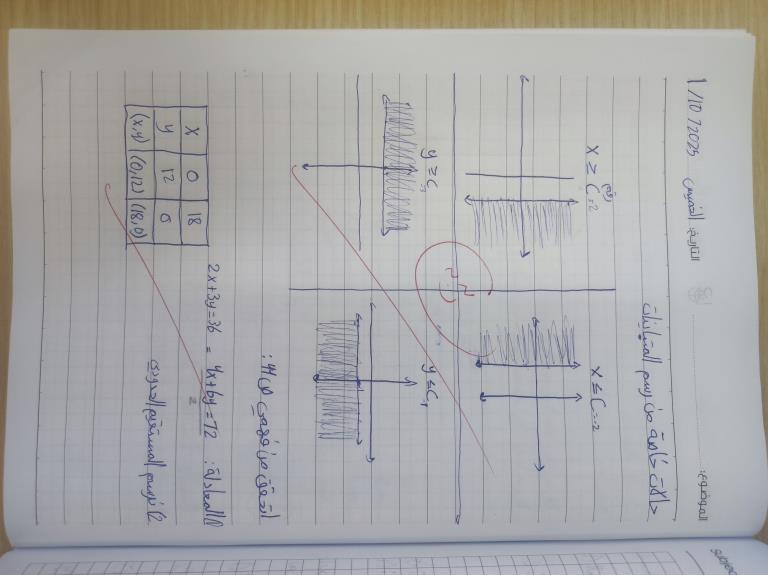 الموضوع: التاريخ: الخميس 1/10/2025
حالات خاصة من رسم المتباينات
رقم
x ≥ C=2
x ≤ C=-2
y ≥ C=1
y ≤ C=-1
اتحقق من فهمي ص 44:
1) المعادلة: 4x+6y=72 = 2x+3y=36
2
2) نرسم المستقيم الحدودي
x 0 18
y 12 0
(x,y) (0,12) (18,0)